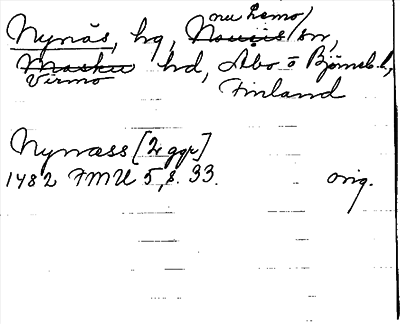 Nynäs, hg, Nousis (nu Lemo) sn,
Masku hd, Åbo o Björneb. l,
Virmo
Finland
Nynæss [2 ggr]
1482 FMU 5, s. 33. orig.